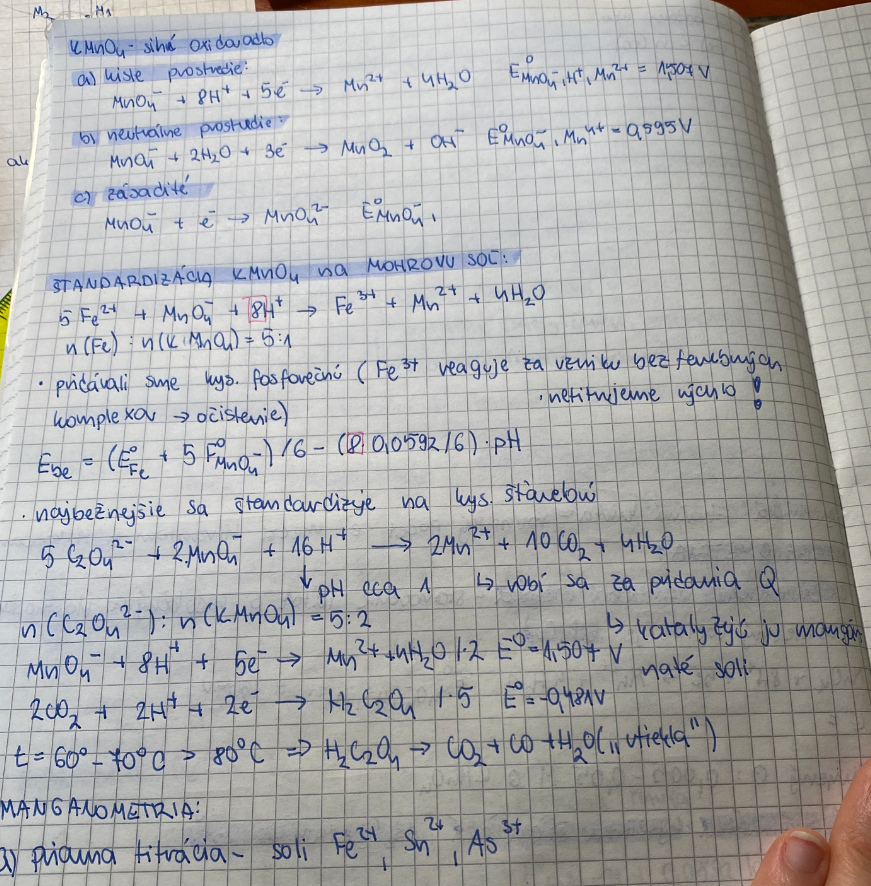 M₂ M₁
KMnO₄ - silné oxidovadlo
a) kyslé prostredie:
MnO₄⁻ + 8H⁺ + 5e⁻ → Mn²⁺ + 4H₂O E⁰MnO₄⁻,H⁺,Mn²⁺ = 1,507 V
b) neutrálne prostredie:
MnO₄⁻ + 2H₂O + 3e⁻ → MnO₂ + OH⁻ E⁰MnO₄⁻, Mn⁴⁺ = 0,595V
c) zásadité
MnO₄⁻ + e⁻ → MnO₄²⁻ E⁰MnO₄⁻,
ŠTANDARDIZÁCIA KMnO₄ na MOHROVU SOĽ:
5 Fe²⁺ + MnO₄⁻ + 8H⁺ → Fe³⁺ + Mn²⁺ + 4H₂O
n(Fe) : n(KMnO₄) = 5:1
• pridávali sme kys. fosforečnú (Fe³⁺ reaguje za vzniku bezfarebných
komplexov → očistenie) • netitrujeme rýchlo!
Ebe = (E⁰Fe + 5 E⁰MnO₄⁻)/6 - (8 0,0592/6) · pH
• najbežnejšie sa štandardizuje na kys. šťavelovú
5 C₂O₄²⁻ + 2MnO₄⁻ + 16H⁺ → 2Mn²⁺ + 10CO₂ + 4H₂O
↓ pH cca 1 ↳ robí sa za pridania Q
n(C₂O₄²⁻) : n(KMnO₄) = 5:2
↳ katalyzujú ju mangán
MnO₄⁻ + 8H⁺ + 5e⁻ → Mn²⁺ + 4H₂O /·2 E⁰ = 1,507 V
naté soli
2CO₂ + 2H⁺ + 2e⁻ → H₂C₂O₄ /·5 E⁰ = -0,481V
t = 60° - 70°C > 80°C ⇒ H₂C₂O₄ → CO₂ + CO + H₂O („utiekla")
MANGANOMETRIA:
a) priama titrácia - soli Fe²⁺, Sn²⁺, As³⁺